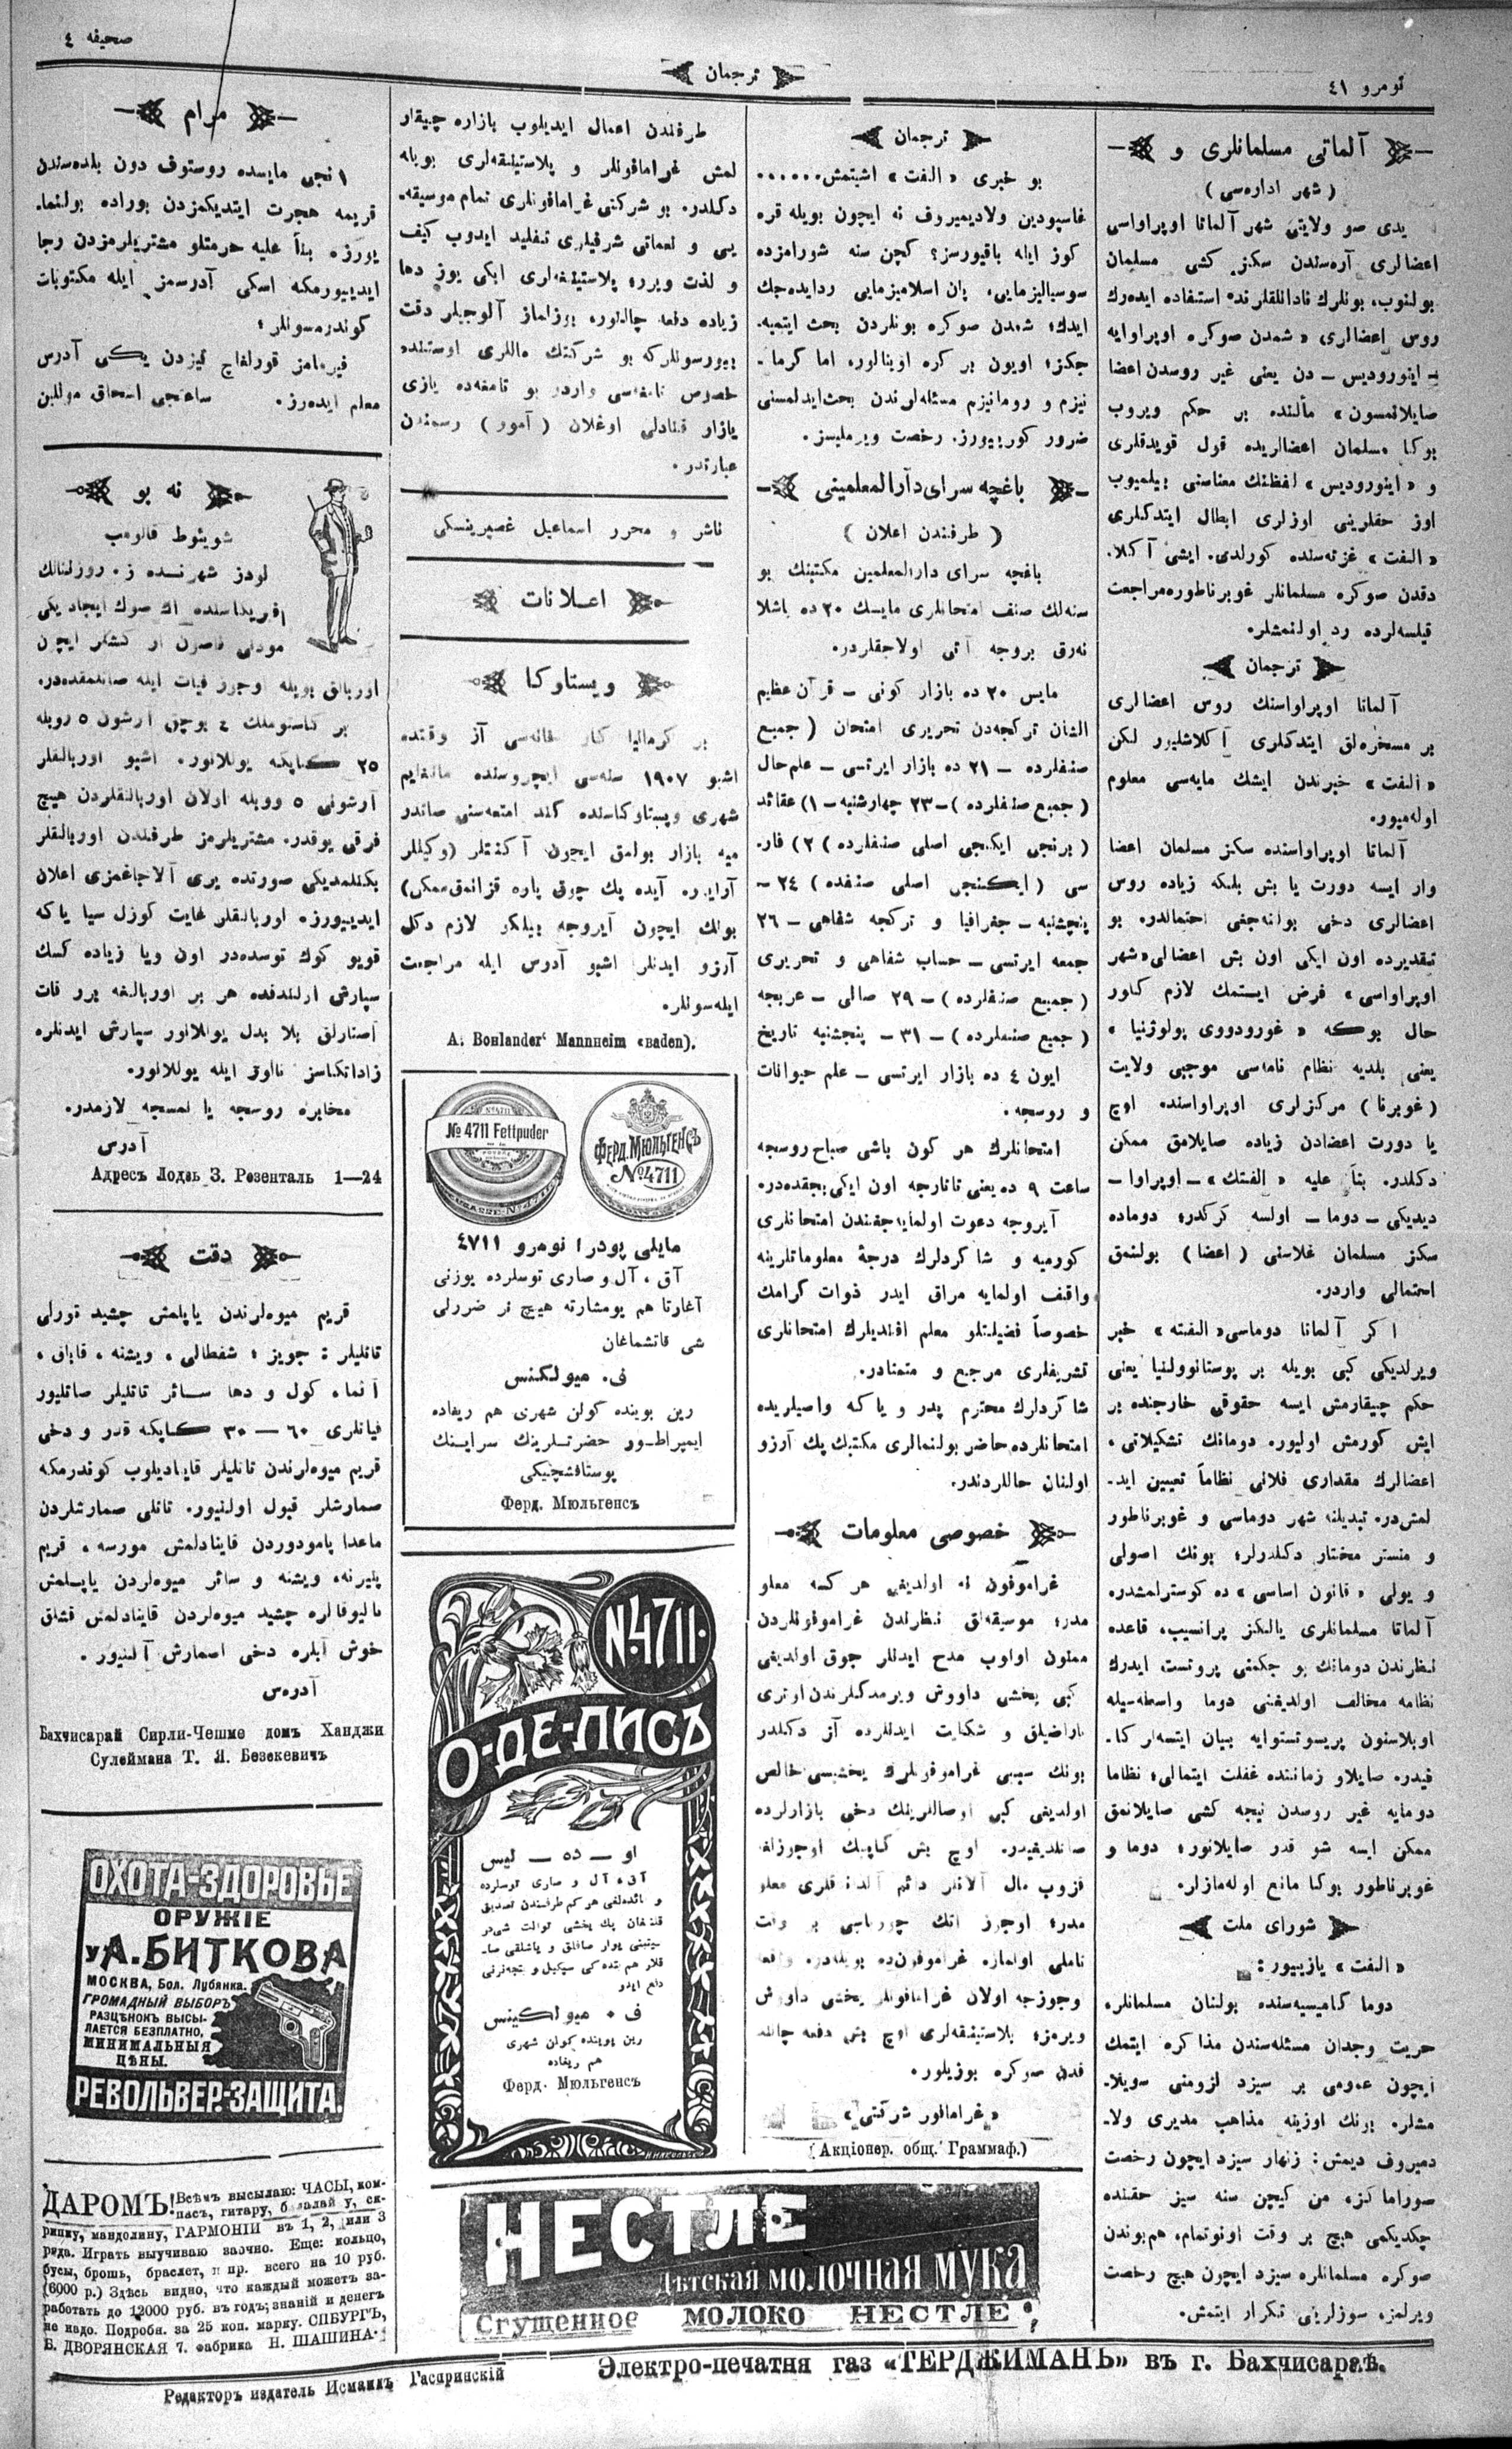 صحیفه ٤
ترجمان
نومرو ٤١
آلماتی مسلمانلری و
( شهر اداره‌سی )
یدی صو ولایتی شهر آلماتا اوپراواسی
اعضالری آره‌سندن سکز کشی مسلمان
بولنوب، بونلرك نادانلقلرندن استفاده ایده‌رك
روس اعضالری « شمدن صوکره اوپراوایه
- اینورودیس - دن یعنی غیر روسدن اعضا
صایلانمسون » مآلنده بر حکم ویروب
بوکا مسلمان اعضالریده قول قویدقلری
و « اینورودیس » لفظنك معناسنی بیلمیوب
اوز حقلرینی اوزلری ابطال ایتدکلری
« الفت » غزته‌سنده کورلدی. ایشی آکلا.
دقدن صوکره مسلمانلر غوبرناطوره مراجعت
قیلسه‌لرده رد اولنمشلر.
ترجمان
آلماتا اوپراواسنك روس اعضالری
بر مسخره‌لق ایتدکلری آکلاشلیور لکن
« الفت » خبرندن ایشك مایه‌سی معلوم
اوله‌میور.
آلماتا اوپراواسنده سکز مسلمان اعضا
وار ایسه دورت یا بش بلکه زیاده روس
اعضالری دخی بولنه‌جغی احتمالدر. بو
تقدیرده اون ایکی اون بش اعضالی « شهر
اوپراواسی » فرض ایستمك لازم کلور
حال بوکه « غورودووی پولوژنیا »
یعنی بلدیه نظام نامه‌سی موجبی ولایت
( غوبرنا ) مرکزلری اوپراواسنده اوچ
یا دورت اعضادن زیاده صایلامق ممکن
دکلدر. بناً علیه « الفتك » - اوپراوا -
دیدیکی - دوما - اولسه کرکدر؛ دوماده
سکز مسلمان غلاسنی ( اعضا ) بولنمق
احتمالی واردر.
اکر آلماتا دوماسی « الفته » خبر
ویرلدیکی کبی بویله بر پوستانوولنیا یعنی
حکم چیقارمش ایسه حقوقی خارجنده بر
ایش کورمش اولیور. دومانك تشکیلاتی،
اعضالرك مقداری فلانی نظاماً تعیین اید-
لمش‌در. تبدیلنه شهر دوماسی و غوبرناطور
و منستر مختار دکلدرلر؛ بونك اصولی
و یولی « قانون اساسی » ده کوسترلمشدر.
آلماتا مسلمانلری یالکز پرانسیب، قاعده
نظرندن دومانك بو حکمنی پروتست ایدرك
نظامه مخالف اولدیغنی دوما واسطه‌سیله
اوبلاستنون پریسوتستوایه بیان ایتسه‌لر کا-
فیدر. صایلاو زماننده غفلت ایتمالی؛ نظاما
دومایه غیر روسدن نیجه کشی صایلانمق
ممکن ایسه شو قدر صایلانور؛ دوما و
غوبرناطور بوکا مانع اوله‌مازلر.
شورای ملت
« الفت » یازییور :
دوما کامیسیه‌سنده بولنان مسلمانلره
حریت وجدان مسئله‌سندن مذاکره ایتمك
ایچون عمومی بر سیزد لزومنی سویلا-
مشلر. بونك اوزینه مذاهب مدیری ولا-
دمیروف دیمش: زنهار سیزد ایچون رخصت
صوراماکز، من کیچن سنه سیز حقنده
چکدیکمی هیچ بر وقت اونوتمام، هم بوندن
صوکره مسلمانلره سیزد ایچون هیچ رخصت
ویرلمز، سوزلرینی تکرار ایتمش.
ترجمان
بو خبری « الفت » اشیتمش......
غاسپودین ولادیمیروف نه ایچون بویله قره
کوز ایله باقیورسز؟ کچن سنه شورامزده
سوسیالیزمایی، پان اسلامیزمایی ردایده‌جك
ایدك؛ شمدن صوکره بونلردن بحث ایتمیه-
جکز؛ اویون بر کره اوینالور، اما کرما-
نیزم و رومانیزم مسئله‌لرندن بحث ایدلمسنی
ضرور کورییورز. رخصت ویرملیسز.
باغچه سرای دارالمعلمینی
( طرفندن اعلان )
باغچه سرای دارالمعلمین مکتبنك بو
سنه‌لك صنف امتحانلری مایسك ٢٠ ده باشلا
نه‌رق بروجه آتی اولاجقلردر.
مایس ٢٠ ده بازار کونی - قرآن عظیم
الشان ترکجه‌دن تحریری امتحان ( جمیع
صنفلرده - ٢١ ده بازار ایرتسی - علم حال
( جمیع صنفلرده ) - ٢٣ چهارشنبه - ١) عقائد
( برنجی ایکنجی اصلی صنفلرده ) ٢) فار-
سی ( ایکنجی اصلی صنفده ) ٢٤ -
پنچشنبه - جغرافیا و ترکجه شفاهی - ٢٦
جمعه ایرتسی - حساب شفاهی و تحریری
( جمیع صنفلرده ) - ٢٩ صالی - عربجه
( جمیع صنفلرده ) - ٣١ - پنجشنبه تاریخ
ایون ٤ ده بازار ایرتسی - علم حیوانات
و روسجه.
امتحانلرك هر کون باشی صباح روسجه
ساعت ٩ ده یعنی تاتارجه اون ایکی بچقده‌در.
آیروجه دعوت اولمایه‌جغندن امتحانلری
کورمیه و شاکردلرك درجۀ معلوماتلرینه
واقف اولمایه مراق ایدر ذوات کرامك
خصوصاً فضیلتلو معلم افندیلرك امتحانلری
تشریفلری مرجع و متمنادر.
شاکردلرك محترم پدر و یاکه واصیلریده
امتحانلرده حاضر بولنمالری مکتبك پك آرزو
اولنان حاللردندر.
خصوصی معلومات
غراموفون نه اولدیغی هر کسه معلو
مدر؛ موسیقه‌لق نظرندن غراموفونلردن
ممنون اولوب مدح ایدنلر چوق اولدیغی
کبی یخشی داووش ویرمدکلرندن اوتری
ناراضیلق و شکایت ایدنلرده آز دکلدر
بونك سببی غراموفونلرك یخشیسی خالص
اولدیغی کبی اوصاللرینك دخی بازارلرده
صاتلدیغیدر. اوچ بش کاپیك اوجوزلغه
قزوب مال آلانلر دائم آلدانقلری معلو
مدر؛ اوجوز اتك چورباسی بر وقت
تاملی اولماز. غراموفون‌ده بویله‌در. واقعا
وجوزجه اولان غرامافونلر یخشی داوش
ویرمز؛ پلاستینقه‌لری اوچ بش دفعه چالند
قدن صوکره بوزیلور.
« غرامافون شرکتی »
(Акціонер. общ. Граммаф.)
طرفندن اعمال ایدیلوب بازاره چیقار
لمش غرامافونلر و پلاستینقه‌لری بویله
دکلدر. بو شرکتی غرامافونلری تمام موسیقه-
یی و نغماتی شرقیلری تقلید ایدوب کیف
و لذت ویرر، پلاستینقه‌لری ایکی یوز دها
زیاده دفعه چالنور، بوزلماز آلوجیلر دقت
بیورسونلرکه بو شرکتك ماللری اوستنده
خصوص تامغه‌سی واردر بو تامغه‌ده یازی
یازار قنادلی اوغلان ( آمور ) رسمندن
عبارتدر.
ناشر و محرر اسماعیل غصپرینسکی
اعلانات
ویستاوکا
بر کرمانیا کارخانه‌سی آز وقتده
اشبو ١٩٠٧ سنه‌سی ایچروسنده مانهایم
شهری ویستاوکاسنده کلند امتعه‌سنی صاتدر
میه بازار بولمق ایچون آکنتلر (وکیللر
آرایدر. آیده پك چوق پاره قزانمق ممکن)
بونك ایچون آیروجه بیلکی لازم دکل
آرزو ایدنلر اشبو آدرس ایله مراجعت
ایله‌سونلر.
A. Bohlander‘ Mannheim «Baden).
№ 4711 Fettpuder
Ферд. Мюльгенсъ
№ 4711
مایلی پودرا نومرو ٤٧١١
آق، آل و صاری توسلرده یوزنی
آغارتا هم یومشارته هیچ بر ضررلی
شی قاتشماغان
ف. میولکنس
رین بوینده کولن شهری هم ریغاده
ایمپراطور حضرتلرینك سراینك
پوستافشچیکی
Ферд. Мюльгенсъ
№ 4711.
О-ДЕ-ЛИСЪ
او — ده — لیس
آق، آل و صاری توسلرده
و فائده‌لغی هر کم طرفندن تصدیق
قلنغان پك یخشی توالت شی‌در
ف. میولکینس
رین بوینده کولن شهری
هم ریغاده
Ферд. Мюльгенсъ
مرام
١ نجی مایسده روستوف دون بلده‌سندن
قریمه هجرت ایتدیکمزدن بوراده بولنما-
یورز، بناً علیه حرمتلو مشتریلرمزدن رجا
ایدییورمکه اسکی آدرسمز ایله مکتوبات
کوندرمسونلر؛
فیرمامز قورلغاچ تیزدن یکی آدرس
معلم ایده‌رز. ساعتجی اسحاق موللین
نه بو
شویتوط قالومب
لودز شهرنده ز. روزنتالك
فابریقاسنده اك صوك ایجاد یکی
مودلی فاصون ار کشلر ایچون
اوربالق بویله اوجوز فیات ایله صاتلمقده‌در.
بر کاستوملك ٤ بوچق آرشون ٥ روبله
٢٥ کاپکه یوللانور. اشبو اوربالقلر
آرشونی ٥ روبله اولان اوربالقلردن هیچ
فرقی یوقدر. مشتریلرمز طرفندن اوربالقلر
بکنلمدیکی صورتده یری آلاجاغمزی اعلان
ایدییورز، اوربالقلر غایت کوزل سیا یاکه
قویو کوك توسده‌در اون ویا زیاده کسك
سپارش اولندقده هر بر اوربالغه برر قات
آستارلق بلا بدل یوللانور سپارش ایدنلره
زاداتکاسز نالوژ ایله یوللانور.
مخابره روسجه یا لمسجه لازمدر.
آدرس
Адресъ Лодзь З. Розенталь 1—24
دقت
قریم میوه‌لرندن یاپلمش چشید تورلی
تاتلیلر : جویز، شفطالی، ویشنه، قایاق،
آلما، کول و دها سائر تاتلیلر صاتلیور
فیاتلری ٦٠ — ٣٠ کاپکه قدر و دخی
قریم میوه‌لرندن تاتلیلر قاینادیلوب کوندرمکه
صمارشلر قبول اولنیور. تاتلی صمارشلردن
ماعدا پامودوردن قاینادلمش مورسه، قریم
پلیرنه، ویشنه و سائر میوه‌لردن یاپلمش
نالیوقالره چشید میوه‌لردن قاینادلمش قشلق
خوش آبلره دخی اسمارش آلنیور.
آدرس
Бахчисарай Сирли-Чешме домъ Ханджи
Сулеймана Т. Я. Безекевичъ
ОХОТА-ЗДОРОВЬЕ
ОРУЖІЕ
У А. БИТКОВА
МОСКВА, Бол. Лубянка.
ГРОМАДНЫЙ ВЫБОРЪ
РАЗЦѢНОКЪ ВЫСЫ-
ЛАЕТСЯ БЕЗПЛАТНО,
МИНИМАЛЬНЫЯ
ЦѢНЫ.
РЕВОЛЬВЕР-ЗАЩИТА.
ДАРОМЪ! Всѣмъ высылаю: ЧАСЫ, ком-
пасъ, гитару, балалайку, ск-
рипку, мандолину, ГАРМОНІИ въ 1, 2, или 3
ряда. Играть выучиваю заочно. Еще: кольцо,
бусы, брошь, браслет, и пр. всего на 10 руб.
(6000 р.) Здѣсь видно, что каждый можетъ за-
работать до 12000 руб. въ годъ; знаній и денегъ
не надо. Подробн. за 25 коп. марку. СПБУРГЪ,
Б. ДВОРЯНСКАЯ 7. фабрика Н. ШАШИНА.
НЕСТЛЕ
Дѣтская МОЛОЧНАЯ МУКА
Сгущенное МОЛОКО НЕСТЛЕ
Редакторъ издатель Исмаилъ Гаспринскій
Электро-печатня газ «ТЕРДЖИМАНЪ» въ г. Бахчисараѣ.